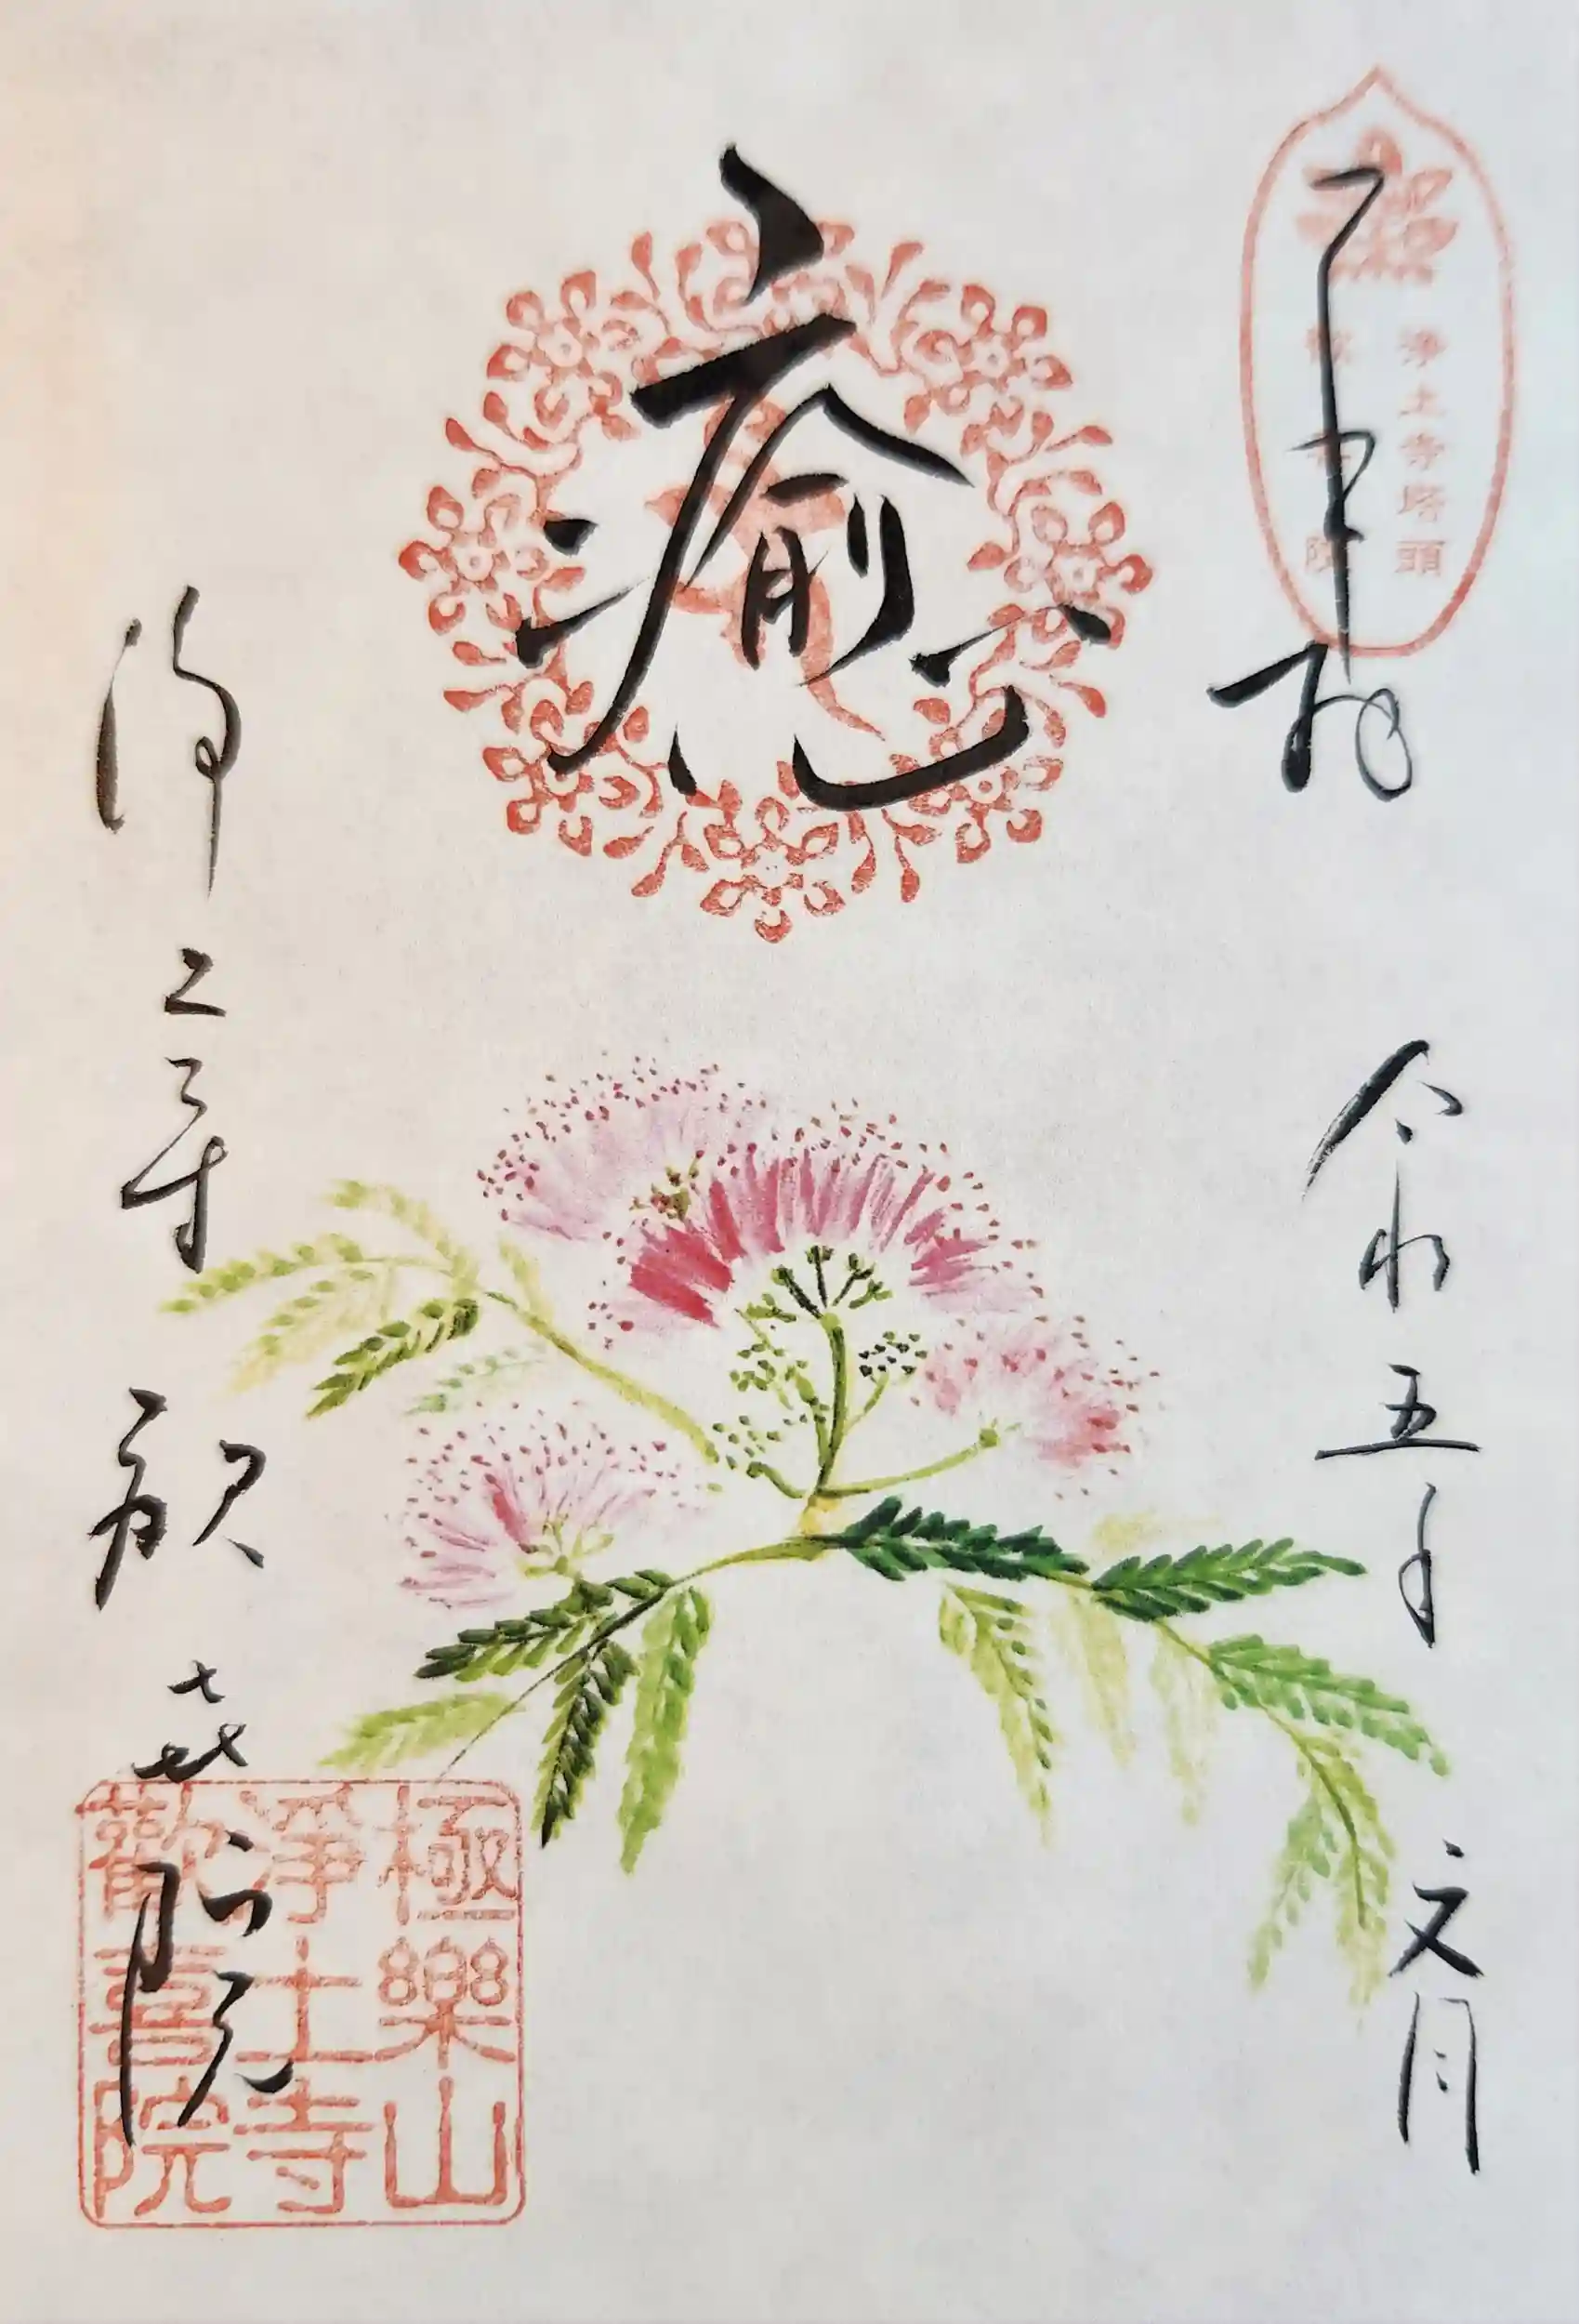 奉拝
令和五年
文月
浄土寺塔頭
歓喜院
癒
浄土寺
歓喜院
極樂山
淨土寺
歡喜院